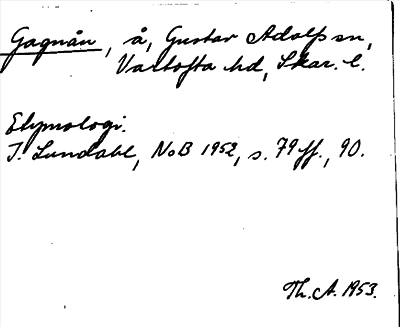 Gagnån, å, Gustav Adolfs sn,
Vartofta hd, Skar. l.
Etymologi.
I. Lundahl, NoB 1952, s. 79 ff., 90.
Th. A. 1953.